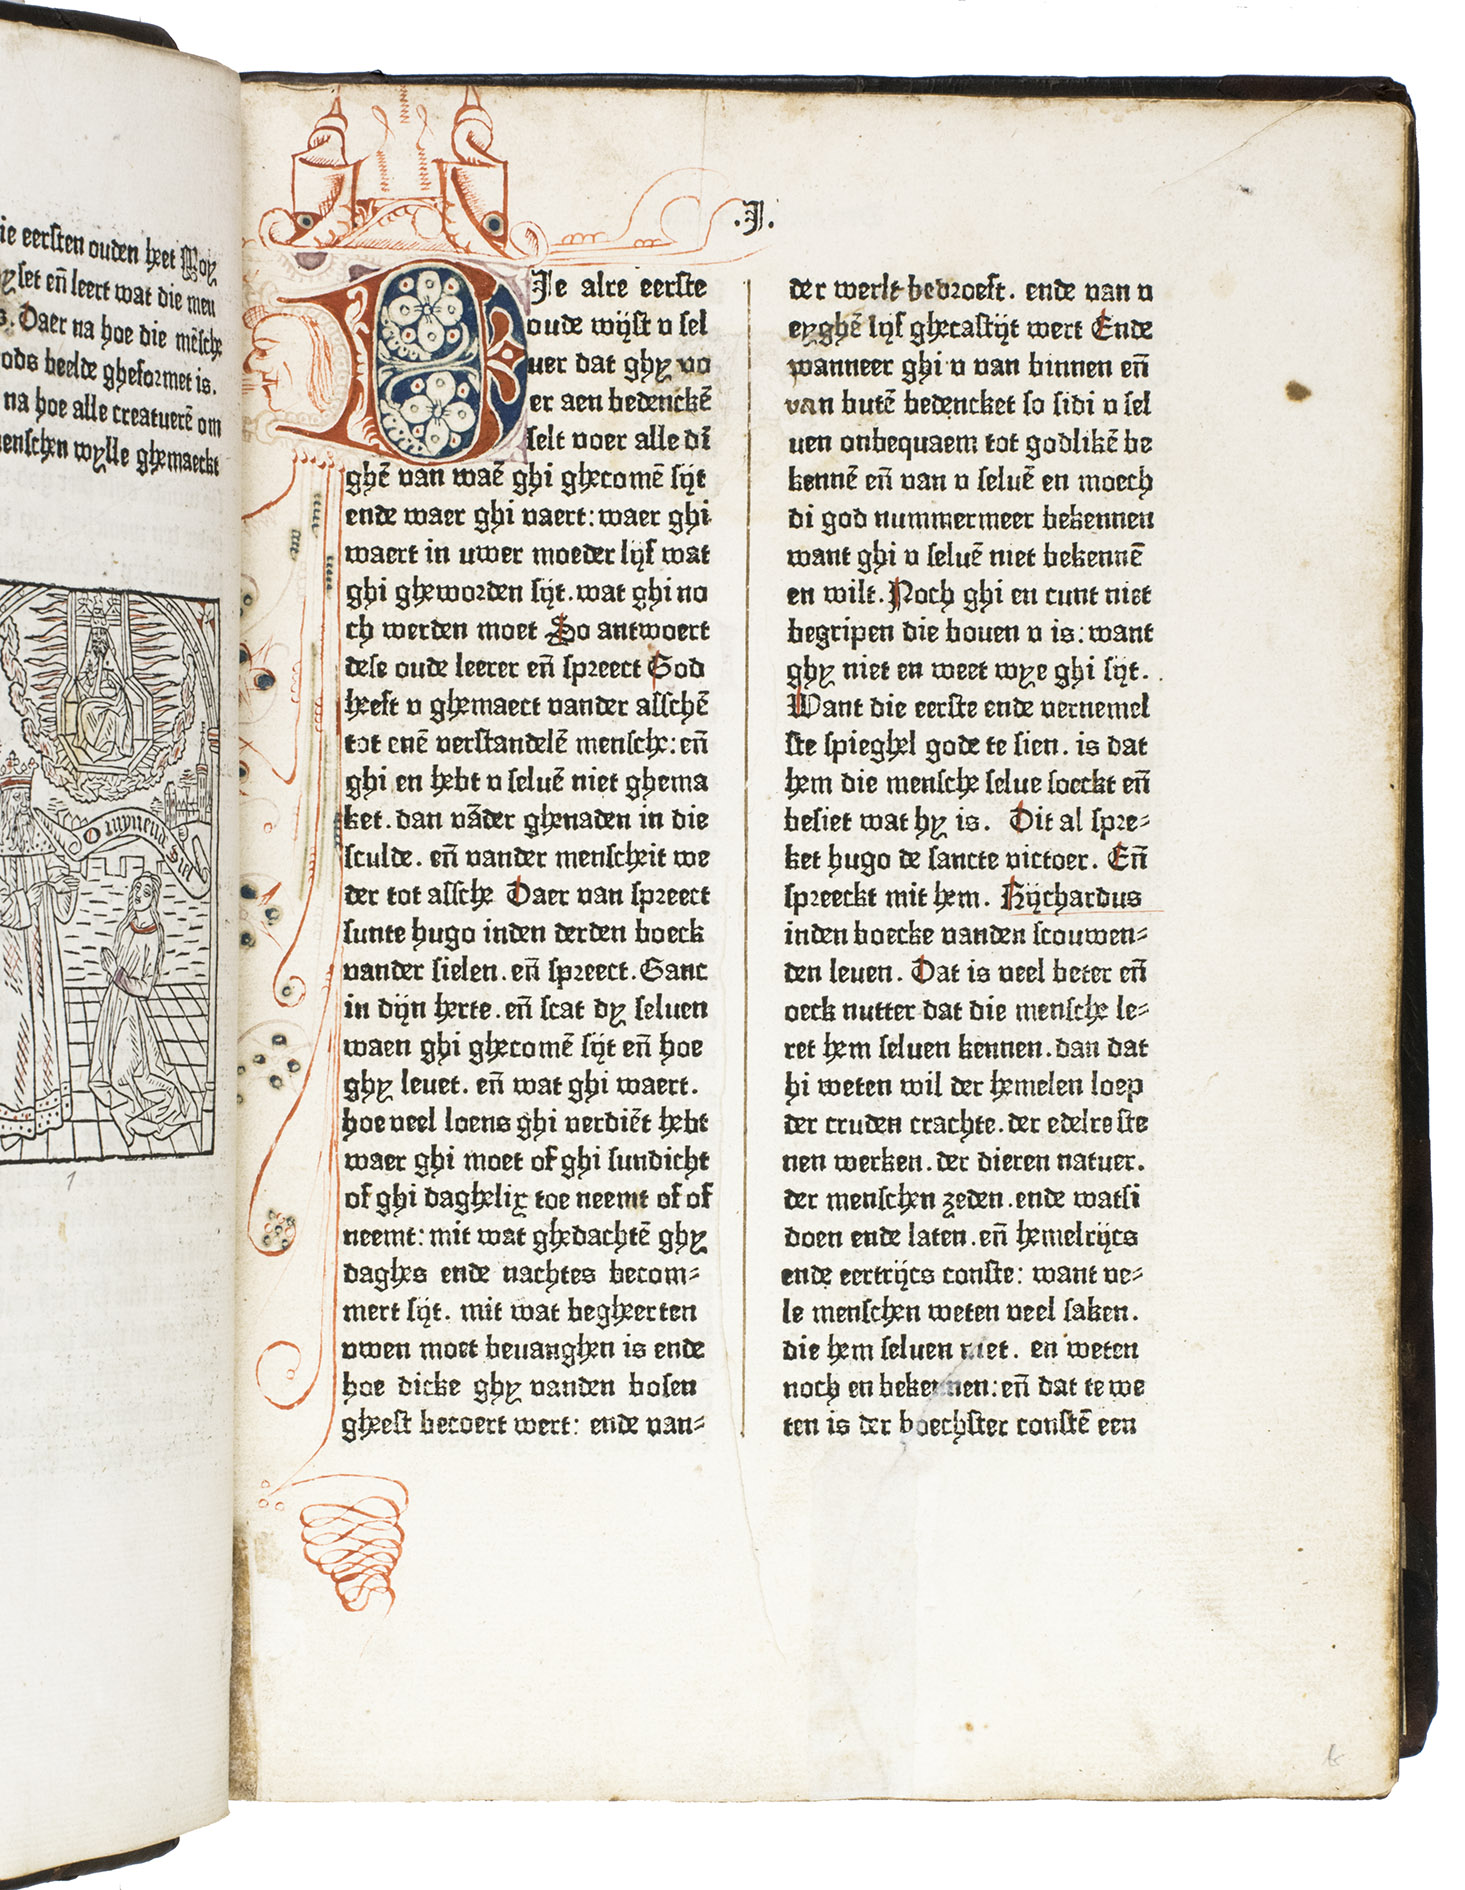 ie eersten ouden heet Moy
yset eñ leert wat die men
s. Daer na hoe die mēsche
ods beelde gheformet is.
na hoe alle creatuerē om
enschen wylle ghemaeckt
O mynend siel
1
.I.
DIe alre eerste
oude wijst v sel
uer dat ghy vo
er aen bedenckē
selt voer alle dī
ghē van waē ghi ghecomē sijt
ende waer ghi vaert: waer ghi
waert in uwer moeder lijf wat
ghi gheworden sijt. wat ghi no
ch werden moet So antwoert
dese oude leerer eñ spreect God
heeft v ghemaect vander asschē
tot enē verstandelē mensche: eñ
ghi en hebt v seluē niet ghema
ket. dan vāder ghenaden in die
sculde. eñ vander menscheit we
der tot assche Daer van spreect
sunte hugo inden derden boeck
vander sielen. eñ spreect. Ganc
in dijn herte. eñ scat dy seluen
waen ghi ghecomē sijt eñ hoe
ghy leuet. eñ wat ghi waert.
hoe veel loens ghi verdiēt hebt
waer ghi moet of ghi sundicht
of ghi daghelix toe neemt of of
neemt: mit wat ghedachtē ghy
daghes ende nachtes becom⸗
mert sijt. mit wat begheerten
vwen moet beuanghen is ende
hoe dicke ghy vanden bosen
gheest becoert wert: ende van⸗
der werlt bedroeft. ende van v
eyghē lijf ghecastijt wert Ende
wanneer ghi v van binnen eñ
van butē bedencket so sidi v sel
uen onbequaem tot godlikē be
kennē eñ van v seluē en moech
di god nummermeer bekennen
want ghi v seluē niet bekennē
en wilt. Noch ghi en cunt niet
begripen die bouen v is: want
ghy niet en weet wye ghi sijt.
Want die eerste ende vernemel
ste spieghel gode te sien. is dat
hem die mensche selue soeckt eñ
besiet wat hy is. Dit al spre⸗
ket hugo de sancte victoer. Eñ
spreeckt mit hem. Rijchardus
inden boecke vanden scouwen⸗
den leuen. Dat is veel beter eñ
oeck nutter dat die mensche le⸗
ret hem seluen kennen. dan dat
hi weten wil der hemelen loep
der cruden crachte. der edelre ste
nen werken. der dieren natuer.
der menschen zeden. ende watsi
doen ende laten. eñ hemelrijcs
ende eertrijcs conste: want ve⸗
le menschen weten veel saken.
die hem seluen niet. en weten
noch en bekennen: eñ dat te we
ten is der hoechster constē een